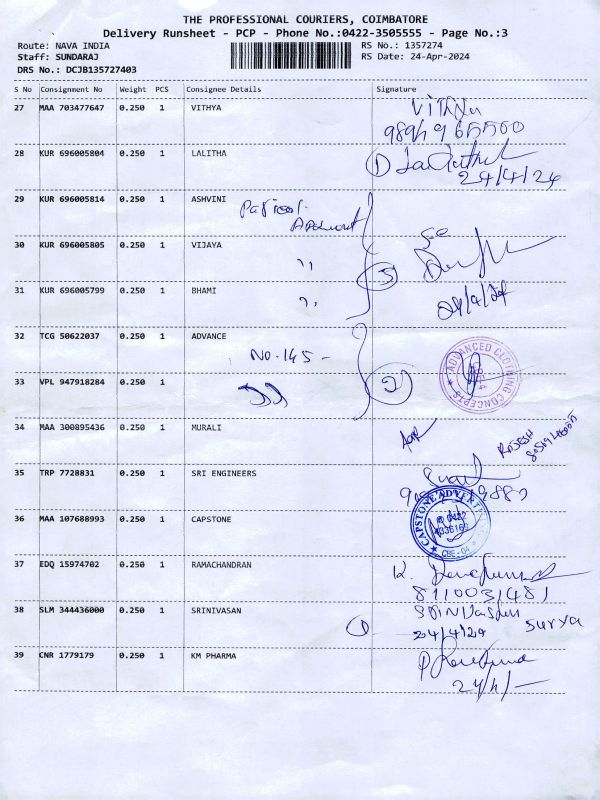 THE PROFESSIONAL COURIERS, COIMBATORE
Delivery Runsheet - PCP - Phone No.:0422-3505555 - Page No.:3
Route: NAVA INDIA
RS No.: 1357274
Staff: SUNDARAJ
RS Date: 24-Apr-2024
DRS No.: DCJB135727403
S No Consignment No Weight PCS Consignee Details Signature
27 MAA 703477647 0.250 1 VITHYA
28 KUR 696005804 0.250 1 LALITHA
24/4/24
29 KUR 696005814 0.250 1 ASHVINI
30 KUR 696005805 0.250 1 VIJAYA
31 KUR 696005799 0.250 1 BHAMI
24/4/24
32 TCG 50622037 0.250 1 ADVANCE
No. 145 -
ADVANCED CLOTHING CONCEPTS
33 VPL 947918284 0.250 1
2
34 MAA 300895436 0.250 1 MURALI
35 TRP 7728831 0.250 1 SRI ENGINEERS
36 MAA 107688993 0.250 1 CAPSTONE
37 EDQ 15974702 0.250 1 RAMACHANDRAN
8110031481
38 SLM 344436000 0.250 1 SRINIVASAN
24/4/24 Surya
39 CNR 1779179 0.250 1 KM PHARMA